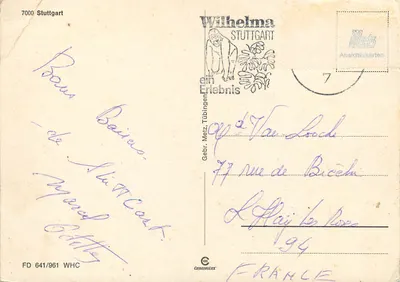 7000 Stuttgart
Wilhelma
STUTTGART
ein
Erlebnis
7
Metz
Ansichtskarten
Bons Baisers
de Stuttgart
Marcel
Gebr. Metz, Tübingen
Van
77 rue de
L'Haÿ les Roses
94
FRANCE
FD 641/961 WHC